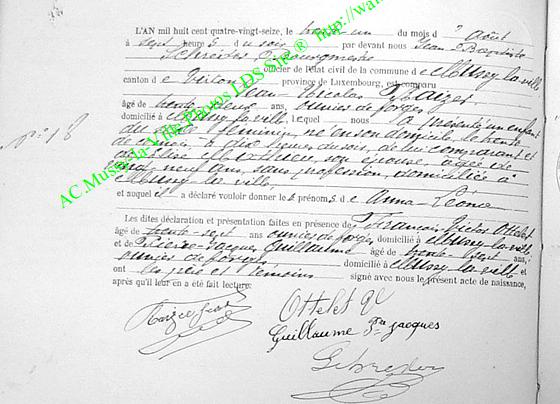 L'AN mil huit cent quatre-vingt-seize, le trente un du mois d' Août
à sept heures du soir par devant nous Jean Baptiste
Schreder Bourgmestre
officier de l'état civil de la commune de Mussy la ville
canton de Virton province de Luxembourg, est comparu
Jean Nicolas
âgé de trente deux ans, ouvrier de forges
domicilié à Mussy la ville, lequel nous a présenté un enfant
du sexe féminin né en son domicile le trente
à dix heures du soir, de lui comparant et
son épouse, âgée de
neuf ans, sans profession, domiciliée à
Mussy la ville,
et auquel il a déclaré vouloir donner les prénoms de Anna Léonie
Les dites déclaration et présentation faites en présence de François Victor Ottelet
âgé de trente sept ans ouvrier de forges domicilié à Mussy la ville
et de Pierre Jacques Guillaume âgé de trente sept ans,
ouvrier de forges domicilié à Mussy la ville et
ont les père et témoins signé avec nous le présent acte de naissance,
après qu'il leur en a été fait lecture.
Ottelet
Guillaume Jacques
Schreder
N° 18
AC.Mussy-la-Ville Photos LDS Site ® http://wa